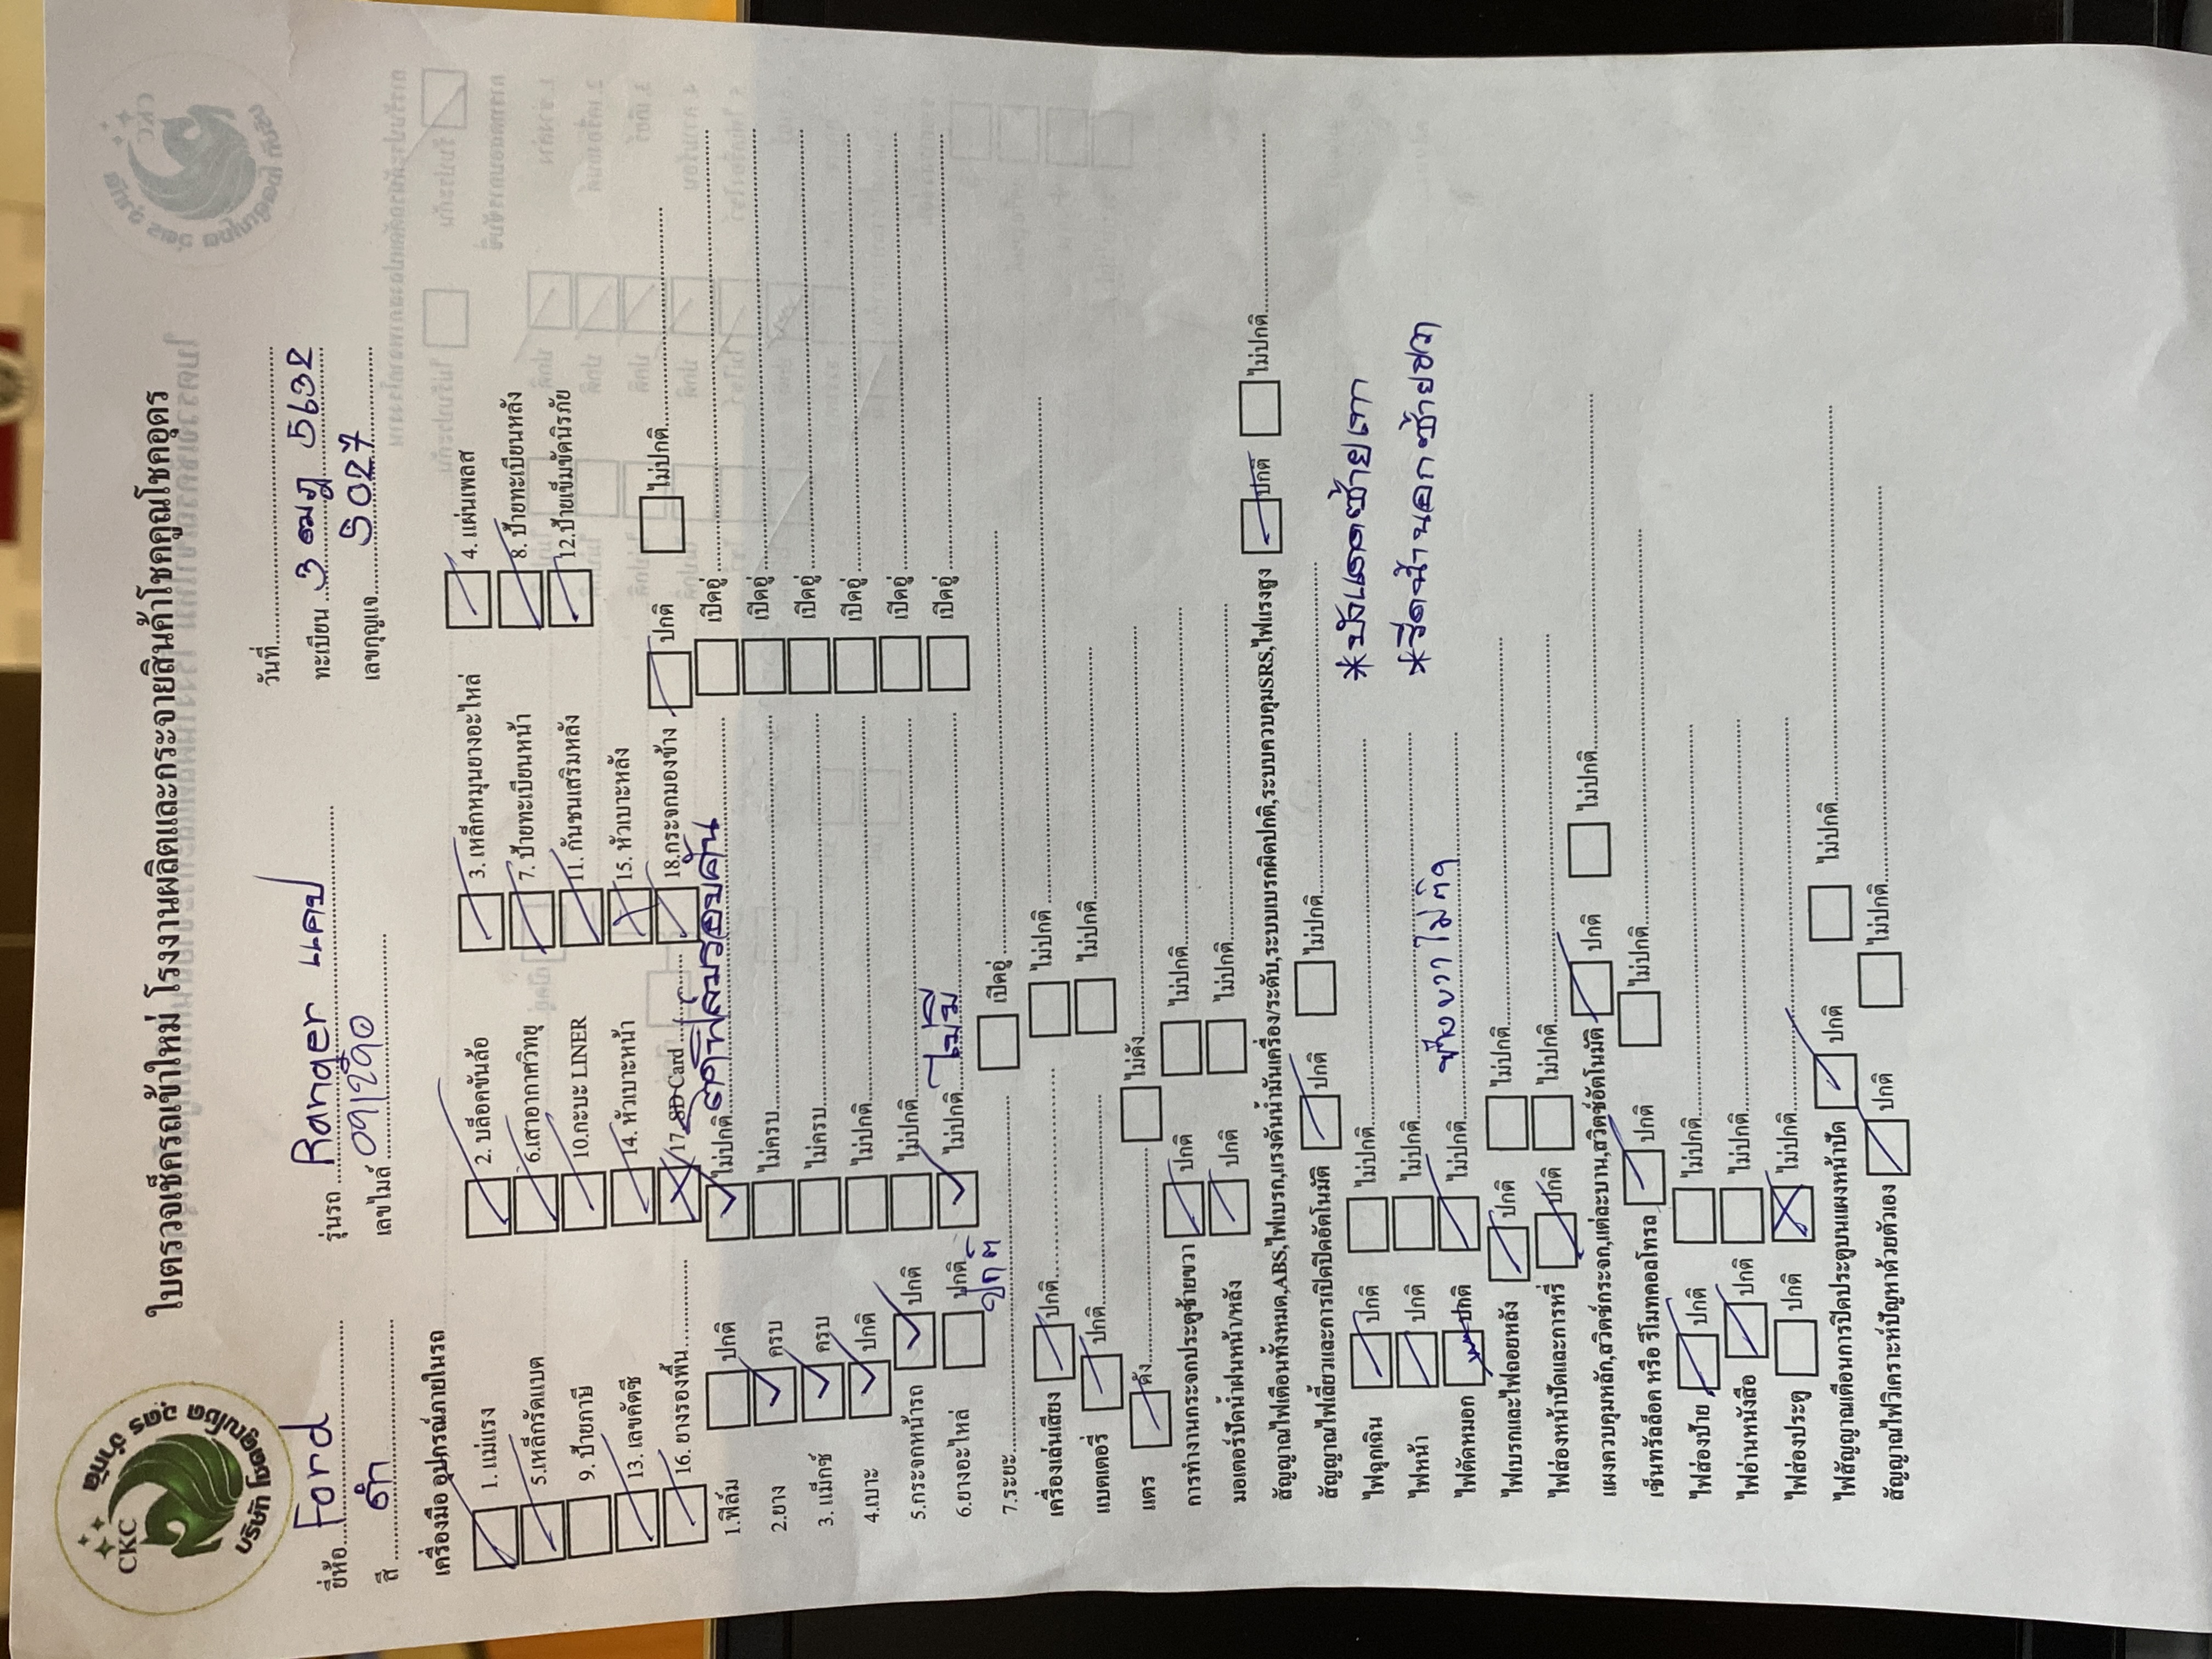 CKC
บริษัท โชคคูณโชค อุดร จำกัด
ใบตรวจเช็ครถเข้าใหม่ โรงงานผลิตและกระจายสินค้าโชคคูณโชคอุดร
วันที่
ยี่ห้อ Ford รุ่นรถ Ranger แคป ทะเบียน 5632
สี ดำ เลขไมล์ เลขกุญแจ 5027
เครื่องมือ อุปกรณ์ภายในรถ
1. แม่แรง 2. บล็อคขันล้อ 3. เหล็กหมุนยางอะไหล่ 4. แผ่นเพลส
5.เหล็กรัดแบต 6.เสาอากาศวิทยุ 7. ป้ายทะเบียนหน้า 8. ป้ายทะเบียนหลัง
9. ป้ายภาษี 10.กะบะ LINER 11. กันชนเสริมหลัง 12.ป้ายเข็มขัดนิรภัย
13. เลขคัดซี 14. หัวเบาะหน้า 15. หัวเบาะหลัง
16. ยางรองพื้น 17.SD-Card 18.กระจกมองข้าง ปกติ ไม่ปกติ
1.ฟิล์ม ปกติ ไม่ปกติ ติดฟิล์มรอบคัน เปิดอู่
2.ยาง ครบ ไม่ครบ เปิดอู่
3. แม็กซ์ ครบ ไม่ครบ เปิดอู่
4.เบาะ ปกติ ไม่ปกติ เปิดอู่
5.กระจกหน้ารถ ปกติ ไม่ปกติ เปิดอู่
6.ยางอะไหล่ ปกติ ไม่ปกติ ไม่มี เปิดอู่
7.ระยะ ปกติ เปิดอู่
เครื่องเล่นเสียง ปกติ ไม่ปกติ
แบตเตอรี่ ปกติ ไม่ปกติ
แตร ดัง ไม่ดัง
การทำงานกระจกประตูซ้ายขวา ปกติ ไม่ปกติ
มอเตอร์ปัดน้ำฝนหน้า/หลัง ปกติ ไม่ปกติ
สัญญาณไฟเตือนทั้งหมด,ABS,ไฟเบรก,แรงดันน้ำมันเครื่อง/ระดับ,ระบบเบรกผิดปกติ,ระบบควบคุมSRS,ไฟแรงสูง ปกติ ไม่ปกติ
สัญญาณไฟเลี้ยวและการเปิดปิดอัตโนมัติ ปกติ ไม่ปกติ
ไฟฉุกเฉิน ปกติ ไม่ปกติ
ไฟหน้า ปกติ ไม่ปกติ
ไฟตัดหมอก ปกติ ไม่ปกติ ข้างขวาไม่ติด
ไฟเบรกและไฟถอยหลัง ปกติ ไม่ปกติ
ไฟส่องหน้าปัดและการหรี่ ปกติ ไม่ปกติ
แผงควบคุมหลัก,สวิตช์กระจก,แต่ละบาน,สวิตช์อัตโนมัติ ปกติ ไม่ปกติ
เซ็นทรัลล็อค หรือ รีโมทคอลโทรล ปกติ ไม่ปกติ
ไฟส่องป้าย ปกติ ไม่ปกติ
ไฟอ่านหนังสือ ปกติ ไม่ปกติ
ไฟส่องประตู ปกติ ไม่ปกติ
ไฟสัญญาณเตือนการปิดประตูบนแผงหน้าปัด ปกติ ไม่ปกติ
สัญญาณไฟวิเคราะห์ปัญหาด้วยตัวเอง ปกติ ไม่ปกติ